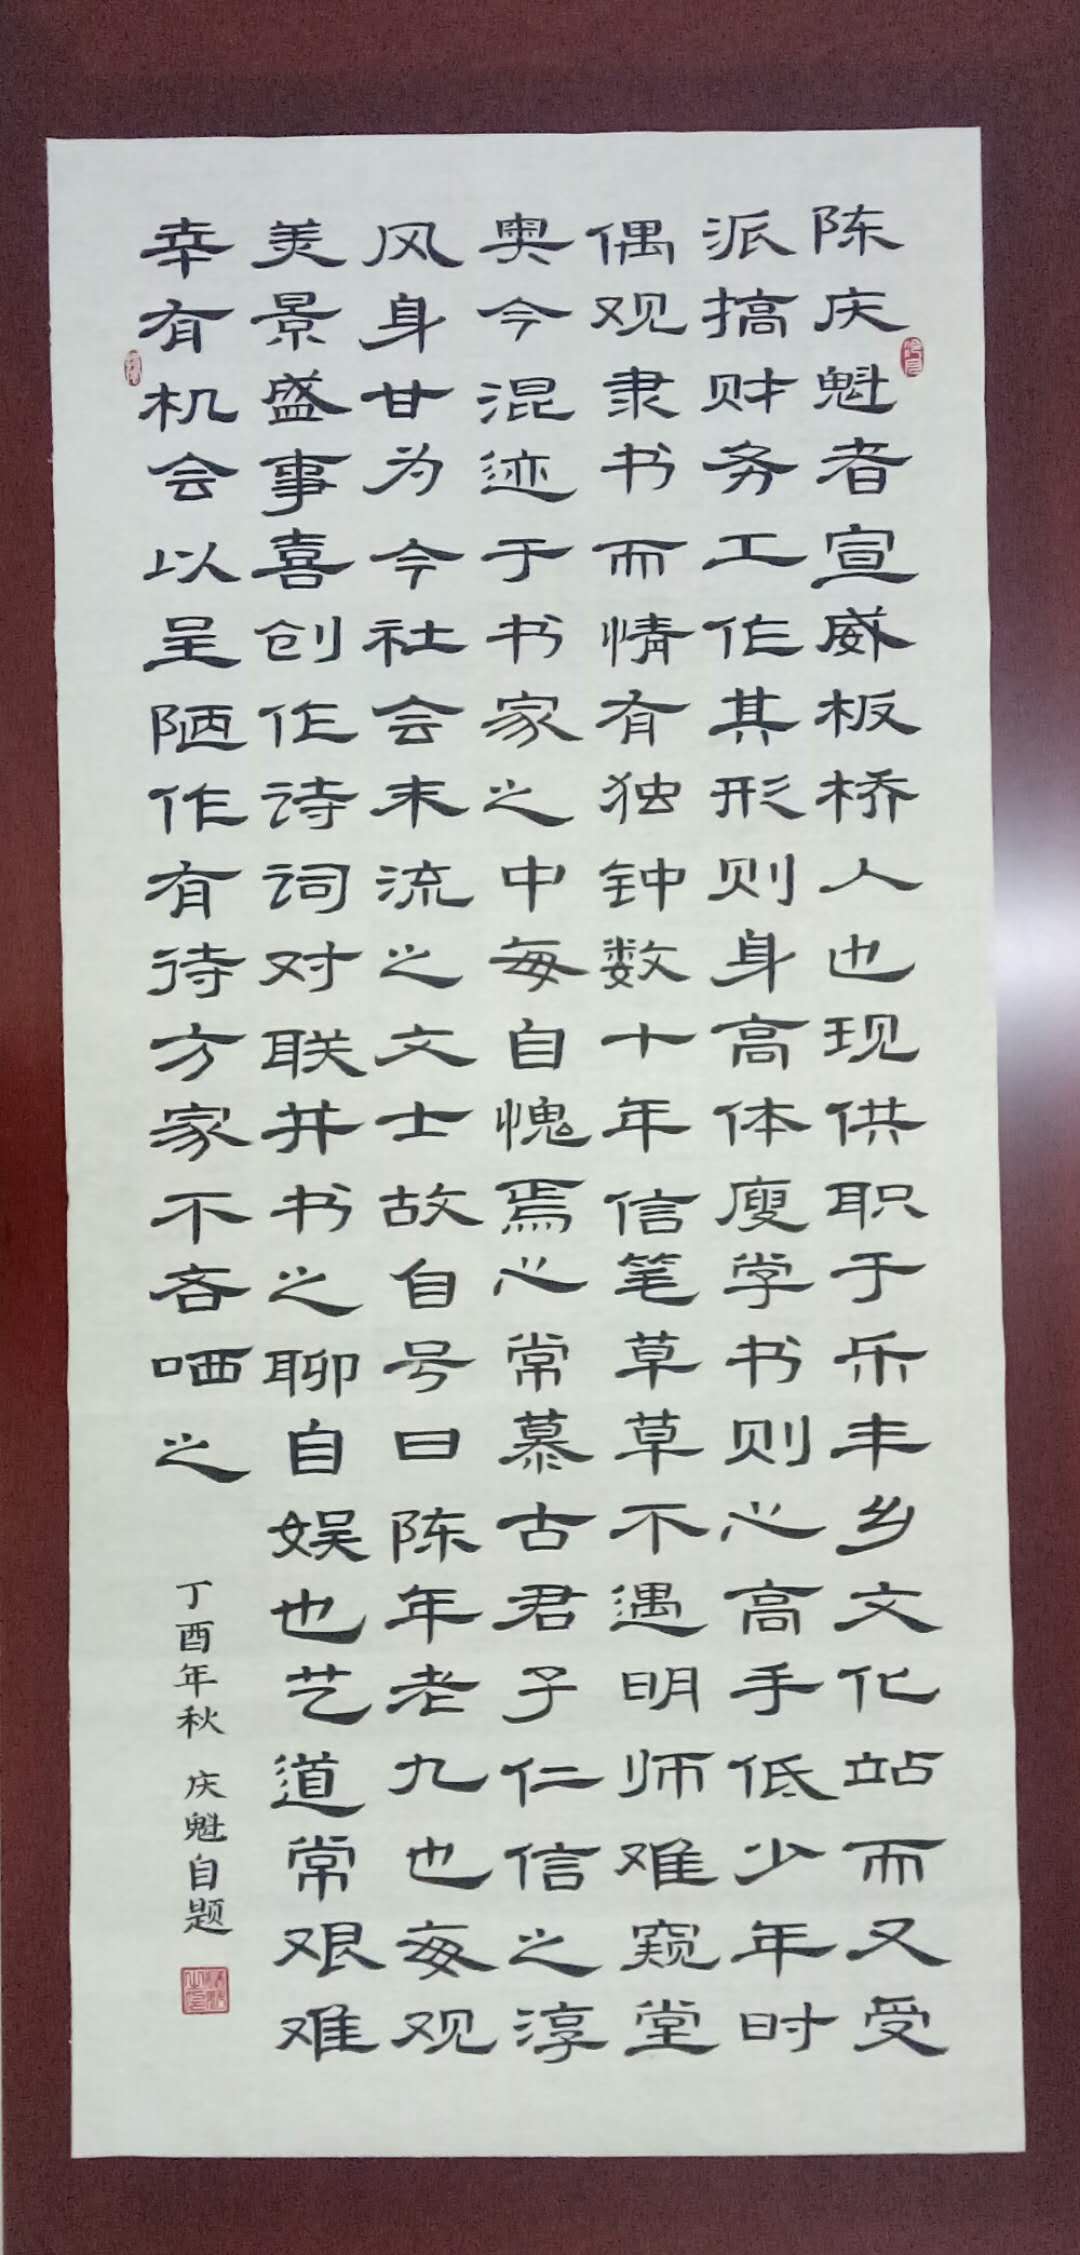 陈庆魁者宣威板桥人也现供职于乐丰乡文化站而又受
派搞财务工作其形则身高体廋学书则心高手低少年时
偶观隶书而情有独钟数十年信笔草草不遇明师难窥堂
奥今混迹于书家之中每自愧焉心常慕古君子仁信之淳
风身甘为今社会末流之文士故自号曰陈年老九也每观
美景盛事喜创作诗词对联并书之聊自娱也艺道常艰难
幸有机会以呈陋作有待方家不吝哂之
丁酉年秋 庆魁自题